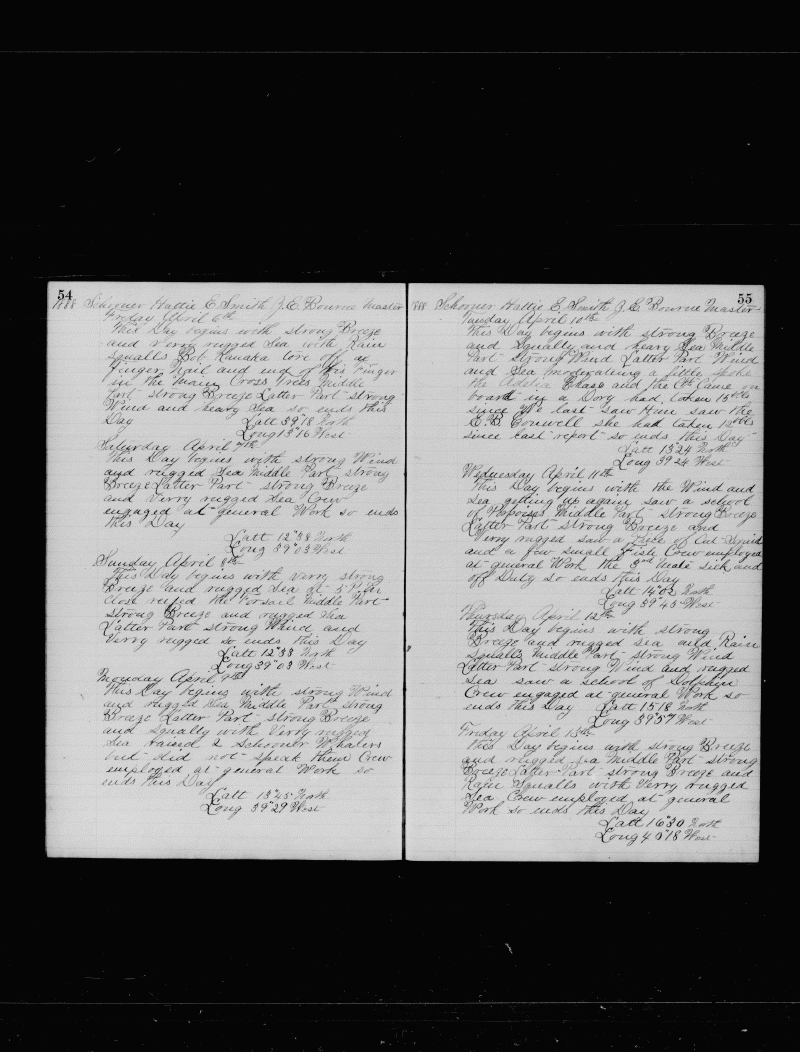 54
1888 Schooner Hattie E Smith J. E. Bourne Master
Friday April 6th
This Day begins with strong Breeze
and verry rugged Sea with Rain
Squalls Bob Kanaka tore off a
Finger Nail and end of his Finger
in the Main Cross Trees Middle
Part strong Breeze Latter Part strong
Wind and heavy Sea so ends this
Day Latt
Long West
Saturday April 7th
This Day begins with strong Wind
and rugged Sea Middle Part strong
Breeze Latter Part strong Breeze
and Verry rugged Sea Crew
engaged at general Work so ends
this Day
Latt 12°38 North
Long 39°03 West
Sunday April 8th
This Day begins with Verry strong
Breeze and rugged Sea at 5
close reefed the Forsail Middle Part
strong Breeze and rugged Sea
Latter Part strong Wind and
Verry rugged so ends this Day
Latt 12°33 North
Long 39°03 West
Monday April 9th
This Day begins with strong Wind
and rugged Sea Middle Part strong
Breeze Latter Part strong Breeze
and squally with Verry rugged
Sea raised 2 Schooner Whalers
but did not speak them Crew
employed at general Work so
ends this Day
Latt 13°45 North
Long 39°29 West
55
1888 Schooner Hattie E Smith J. E. Bourne Master
Tuesday April 10th
This Day begins with strong Breeze
and Squally and heavy Sea Middle
Part Strong Wind Latter Part Wind
and Sea moderating a little spoke
the Adelia Chase and the Capt Came on
board in a Dory had taken 15
since We last saw Him saw the
E. B. Conwell she had taken 12
since last report so ends this Day
Latt 13°24 North
Long 39°24 West
Wednesday April 11th
This Day begins with the Wind and
Sea getting up again saw a school
of Porpoises Middle Part strong Breeze
Latter Part strong Breeze and
Verry rugged saw a Piece of Cut Squid
and a few small Fish Crew employed
at general Work the 3rd Mate sick and
off Duty so ends this Day
Latt 14°02 North
Long 39°43 West
Thursday April 12th
This Day begins with strong
Breeze and rugged Sea and Rain
Squalls Middle Part strong Wind
Latter Part strong Wind and rugged
Sea saw a school of Dolphin
Crew engaged at general Work so
ends this Day Latt 15°18 North
Long 39°57 West
Friday April 13th
This Day begins with strong Breeze
and rugged Sea Middle Part strong
Breeze Latter Part strong Breeze and
Rain Squalls with Verry rugged
Sea Crew employed at general
Work so ends this Day
Latt 16°30 North
Long 40°18 West